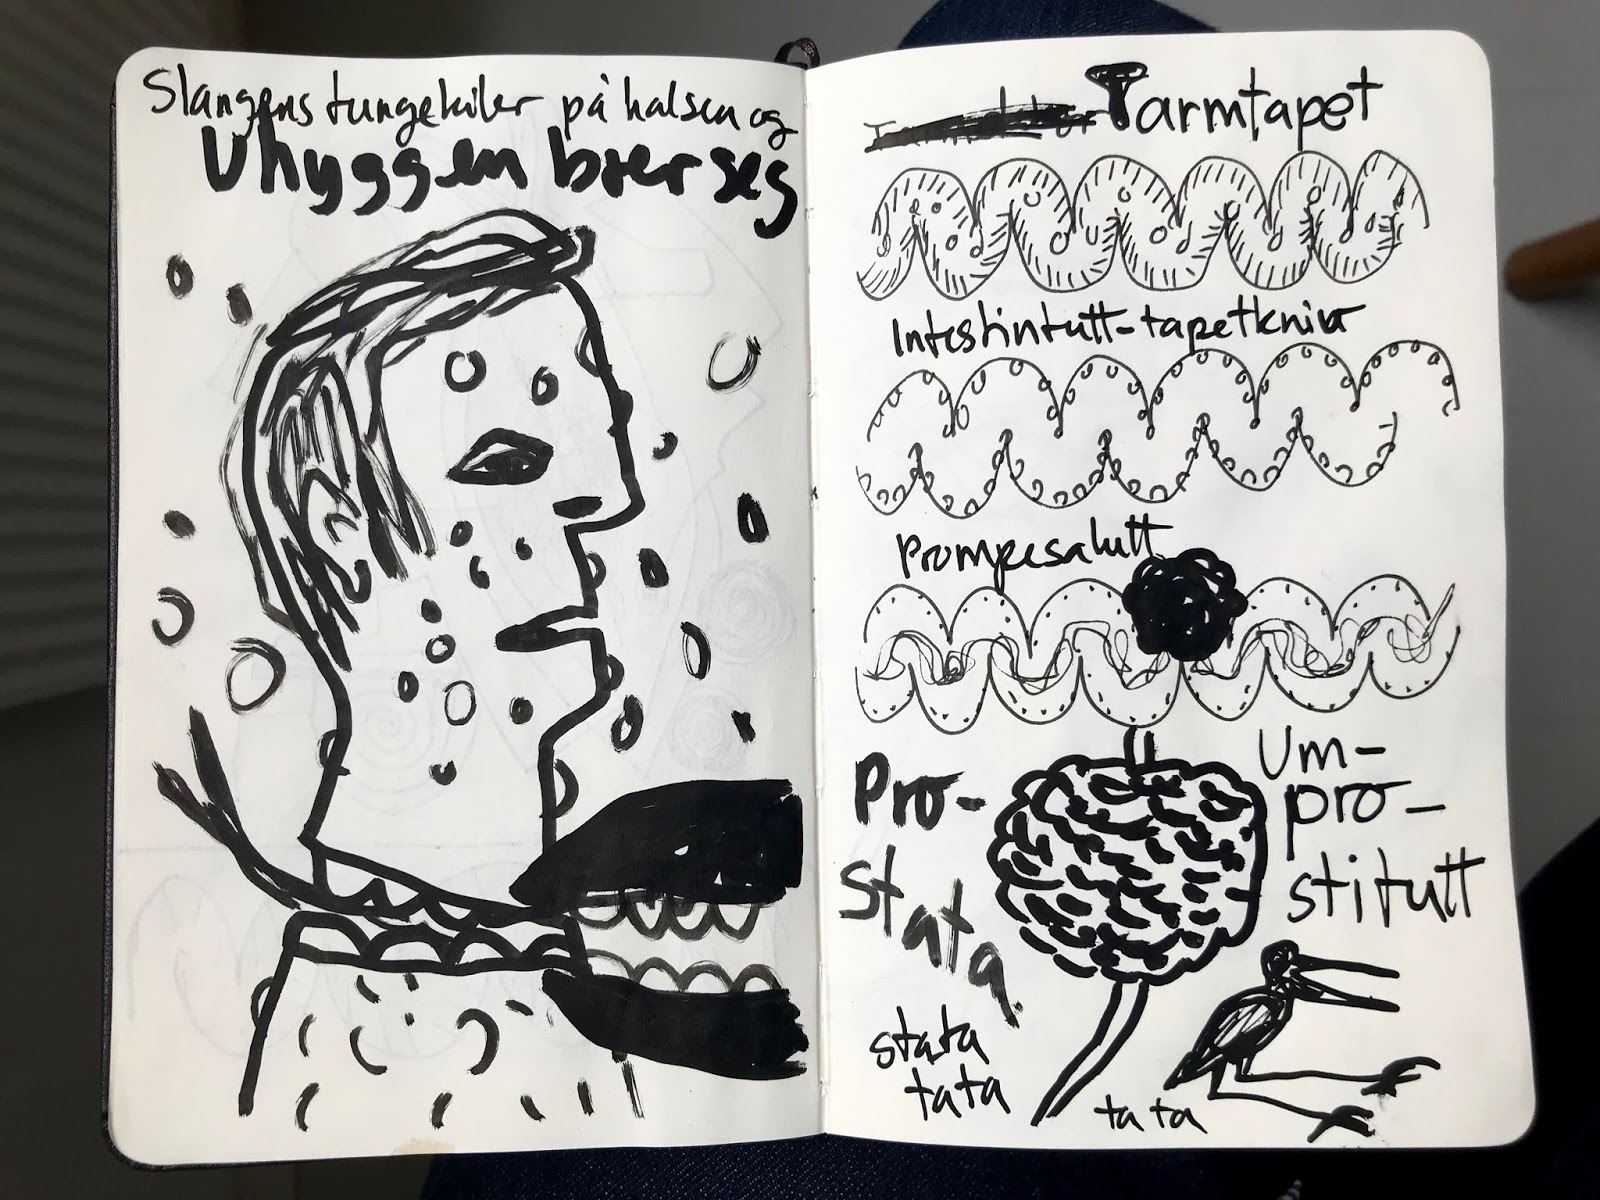 Slangens tunge kiler på halsen og
Uhyggen brer seg
Tarmtapet
Intestintutt-tapetkniv
Prompesalutt
Pro-
stata
stata
tata
tata
Um-
pro-
stitutt